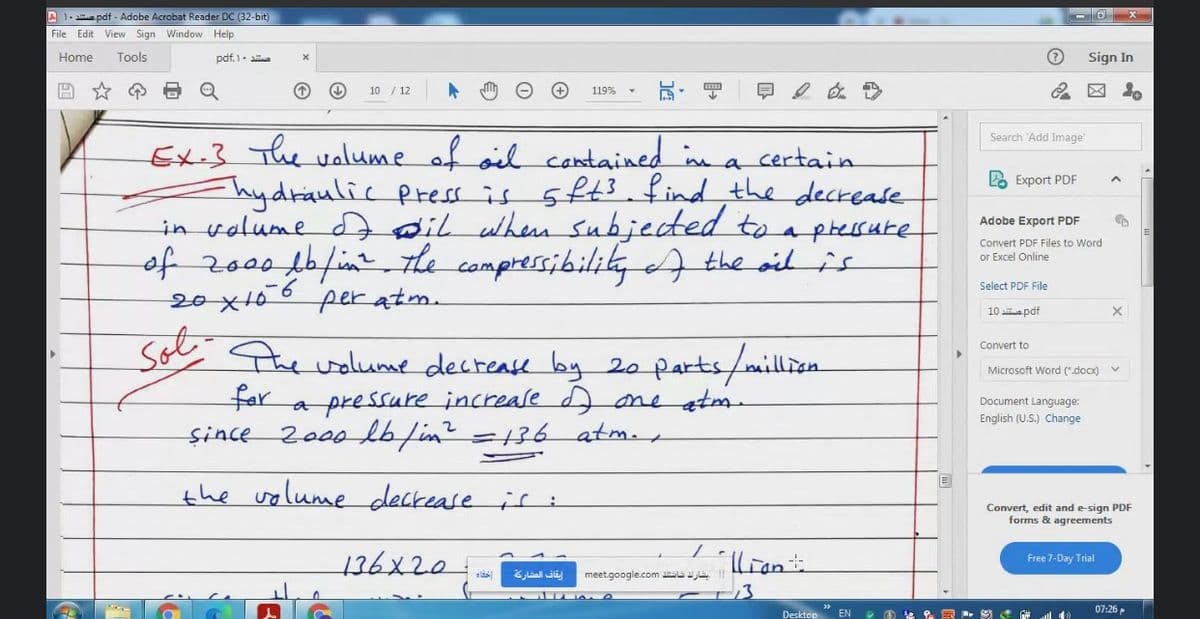 1۰ مستند.pdf - Adobe Acrobat Reader DC (32-bit)
File Edit View Sign Window Help
Home Tools مستند ۱۰.pdf × Sign In
10 / 12 119%
Ex.3 The volume of oil contained in a certain
hydraulic Press is 5 ft³. find the decrease
in volume of oil when subjected to a pressure
of 2000 lb/in². The compressibility of the oil is
20 x 10⁻⁶ per atm.
Sol:-
The volume decrease by 20 parts/million
for a pressure increase of one atm.
since 2000 lb/in² = 136 atm.
the volume decrease is :
136 x 20
llion
إخفاء إيقاف المشاركة meet.google.com يشارك شاشتك
Search 'Add Image'
Export PDF
Adobe Export PDF
Convert PDF Files to Word
or Excel Online
Select PDF File
10 مستند.pdf ×
Convert to
Microsoft Word (*.docx)
Document Language:
English (U.S.) Change
Convert, edit and e-sign PDF
forms & agreements
Free 7-Day Trial
Desktop » EN 07:26 م